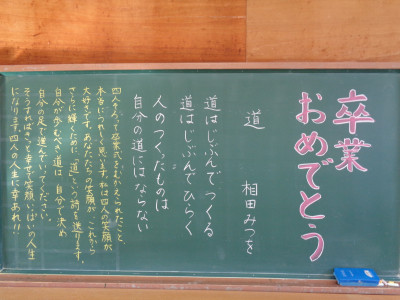 卒業
おめでとう
道
相田みつを
道はじぶんでつくる
道はじぶんでひらく
人のつくったものは
自分の道にはならない
四人そろって卒業式をむかえられたこと、
本当にうれしく思います。私は四人の笑顔が
大好きです。あなたたちの笑顔が、これから
さらに輝くために「道」の詩を送ります。
自分が歩むべき道は、自分で決め
自分の足で進んでいってください。
そうすればきっと幸せで笑顔いっぱいの人生
になります。四人の人生に幸あれ!!